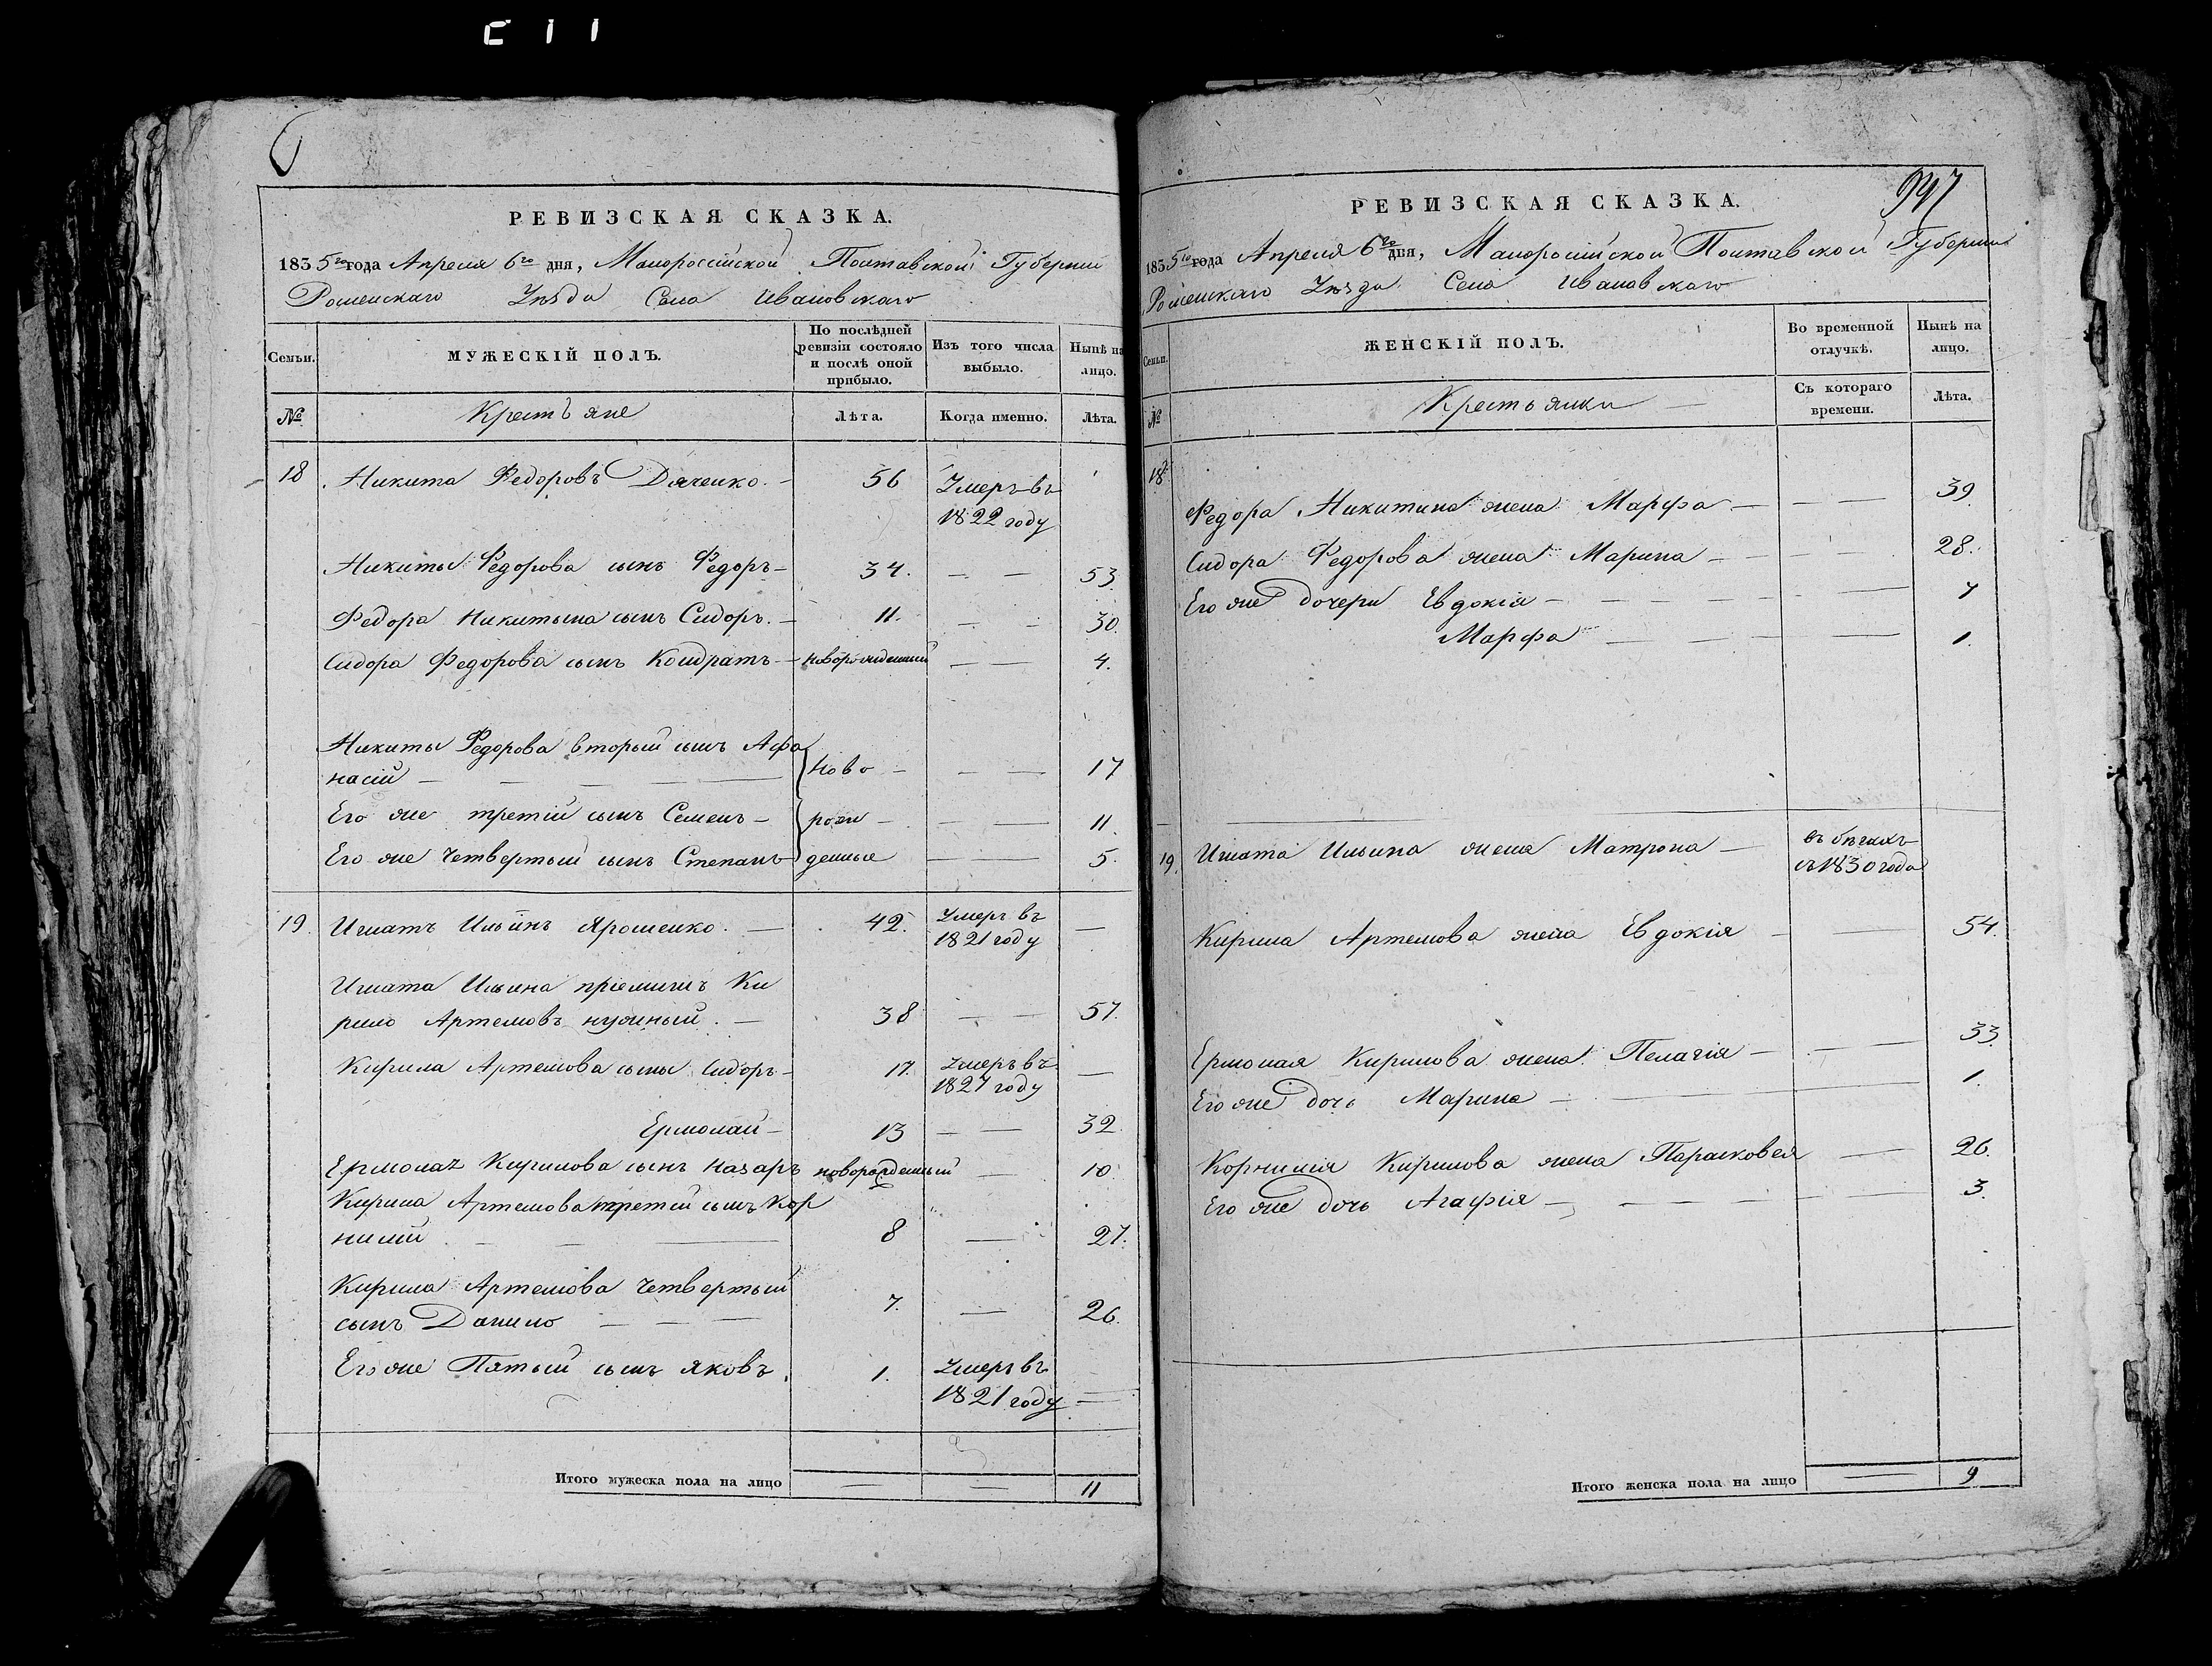 РЕВИЗСКАЯ СКАЗКА.
1835го года Апреля 6го дня, Малороссійской Полтавской Губерніи
Роменскаго Уѣзда Села Ивановскаго
Семьи.
МУЖЕСКІЙ ПОЛЪ.
По послѣдней ревизіи состояло и послѣ оной прибыло.
Изъ того числа выбыло.
Нынѣ на лицо.
№
Крестъяне
Лѣта.
Когда именно.
Лѣта.
18 Никита Федоровъ Дяченко. — 56 Умеръ въ
1822 году
Никиты Федорова сынъ Федоръ — 34. — — 53.
Федора Никитына сынъ Сидоръ. — 11. — — 30.
Сидора Федорова сынъ Кондратъ — новорожденный — — 4.
Никиты Федорова вторый сынъ Афа
насій — — — ново — — — 17
Его же третій сынъ Семенъ — рож — — — 11.
Его же четвертый сынъ Степанъ денные — — 5.
19. Игнатъ Ильинъ Ярошенко. — 42. Умеръ въ
1821 году —
Игната Ильина пріемышъ Ки
рило Артемовъ нужный. — 38 — — 57.
Кирила Артемова сыны Сидоръ — 17. Умеръ въ
1827 году —
Ермолай — 13 — — 32.
Ермолая Кирилова сынъ Назаръ новорожденный — 10.
Кирила Артемова третій сынъ Кор
нилій — — — 8 — 27.
Кирила Артемова четвертый
сынъ Данило — — — 7. — 26.
Его же Пятый сынъ Яковъ. 1. Умеръ въ
1821 году —
Итого мужеска пола на лицо — — 11
947
РЕВИЗСКАЯ СКАЗКА.
1835го года Апреля 6го дня, Малоросійской Полтавской Губерніи
Роменскаго Уѣзда Села Ивановскаго
Семьи.
ЖЕНСКІЙ ПОЛЪ.
Во временной отлучкѣ.
Нынѣ на лицо.
№
Крестьянки
Съ котораго времени.
Лѣта.
18
Федора Никитина жена Марфа — — — 39.
Сидора Федорова жена Марина — — — 28.
Его же дочери Евдокія — — — 7
Марфа — — — 1.
19. Игната Ильина жена Матрона — въ бѣгахъ
съ 1830 года
Кирила Артемова жена Евдокія — — 54.
Ермолая Кирилова жена Пелагія — — — 33.
Его же дочь Марина — — 1.
Корнилія Кирилова жена Парасковея — 26.
Его же дочь Агафія — — — 3.
Итого женска пола на лицо — 9